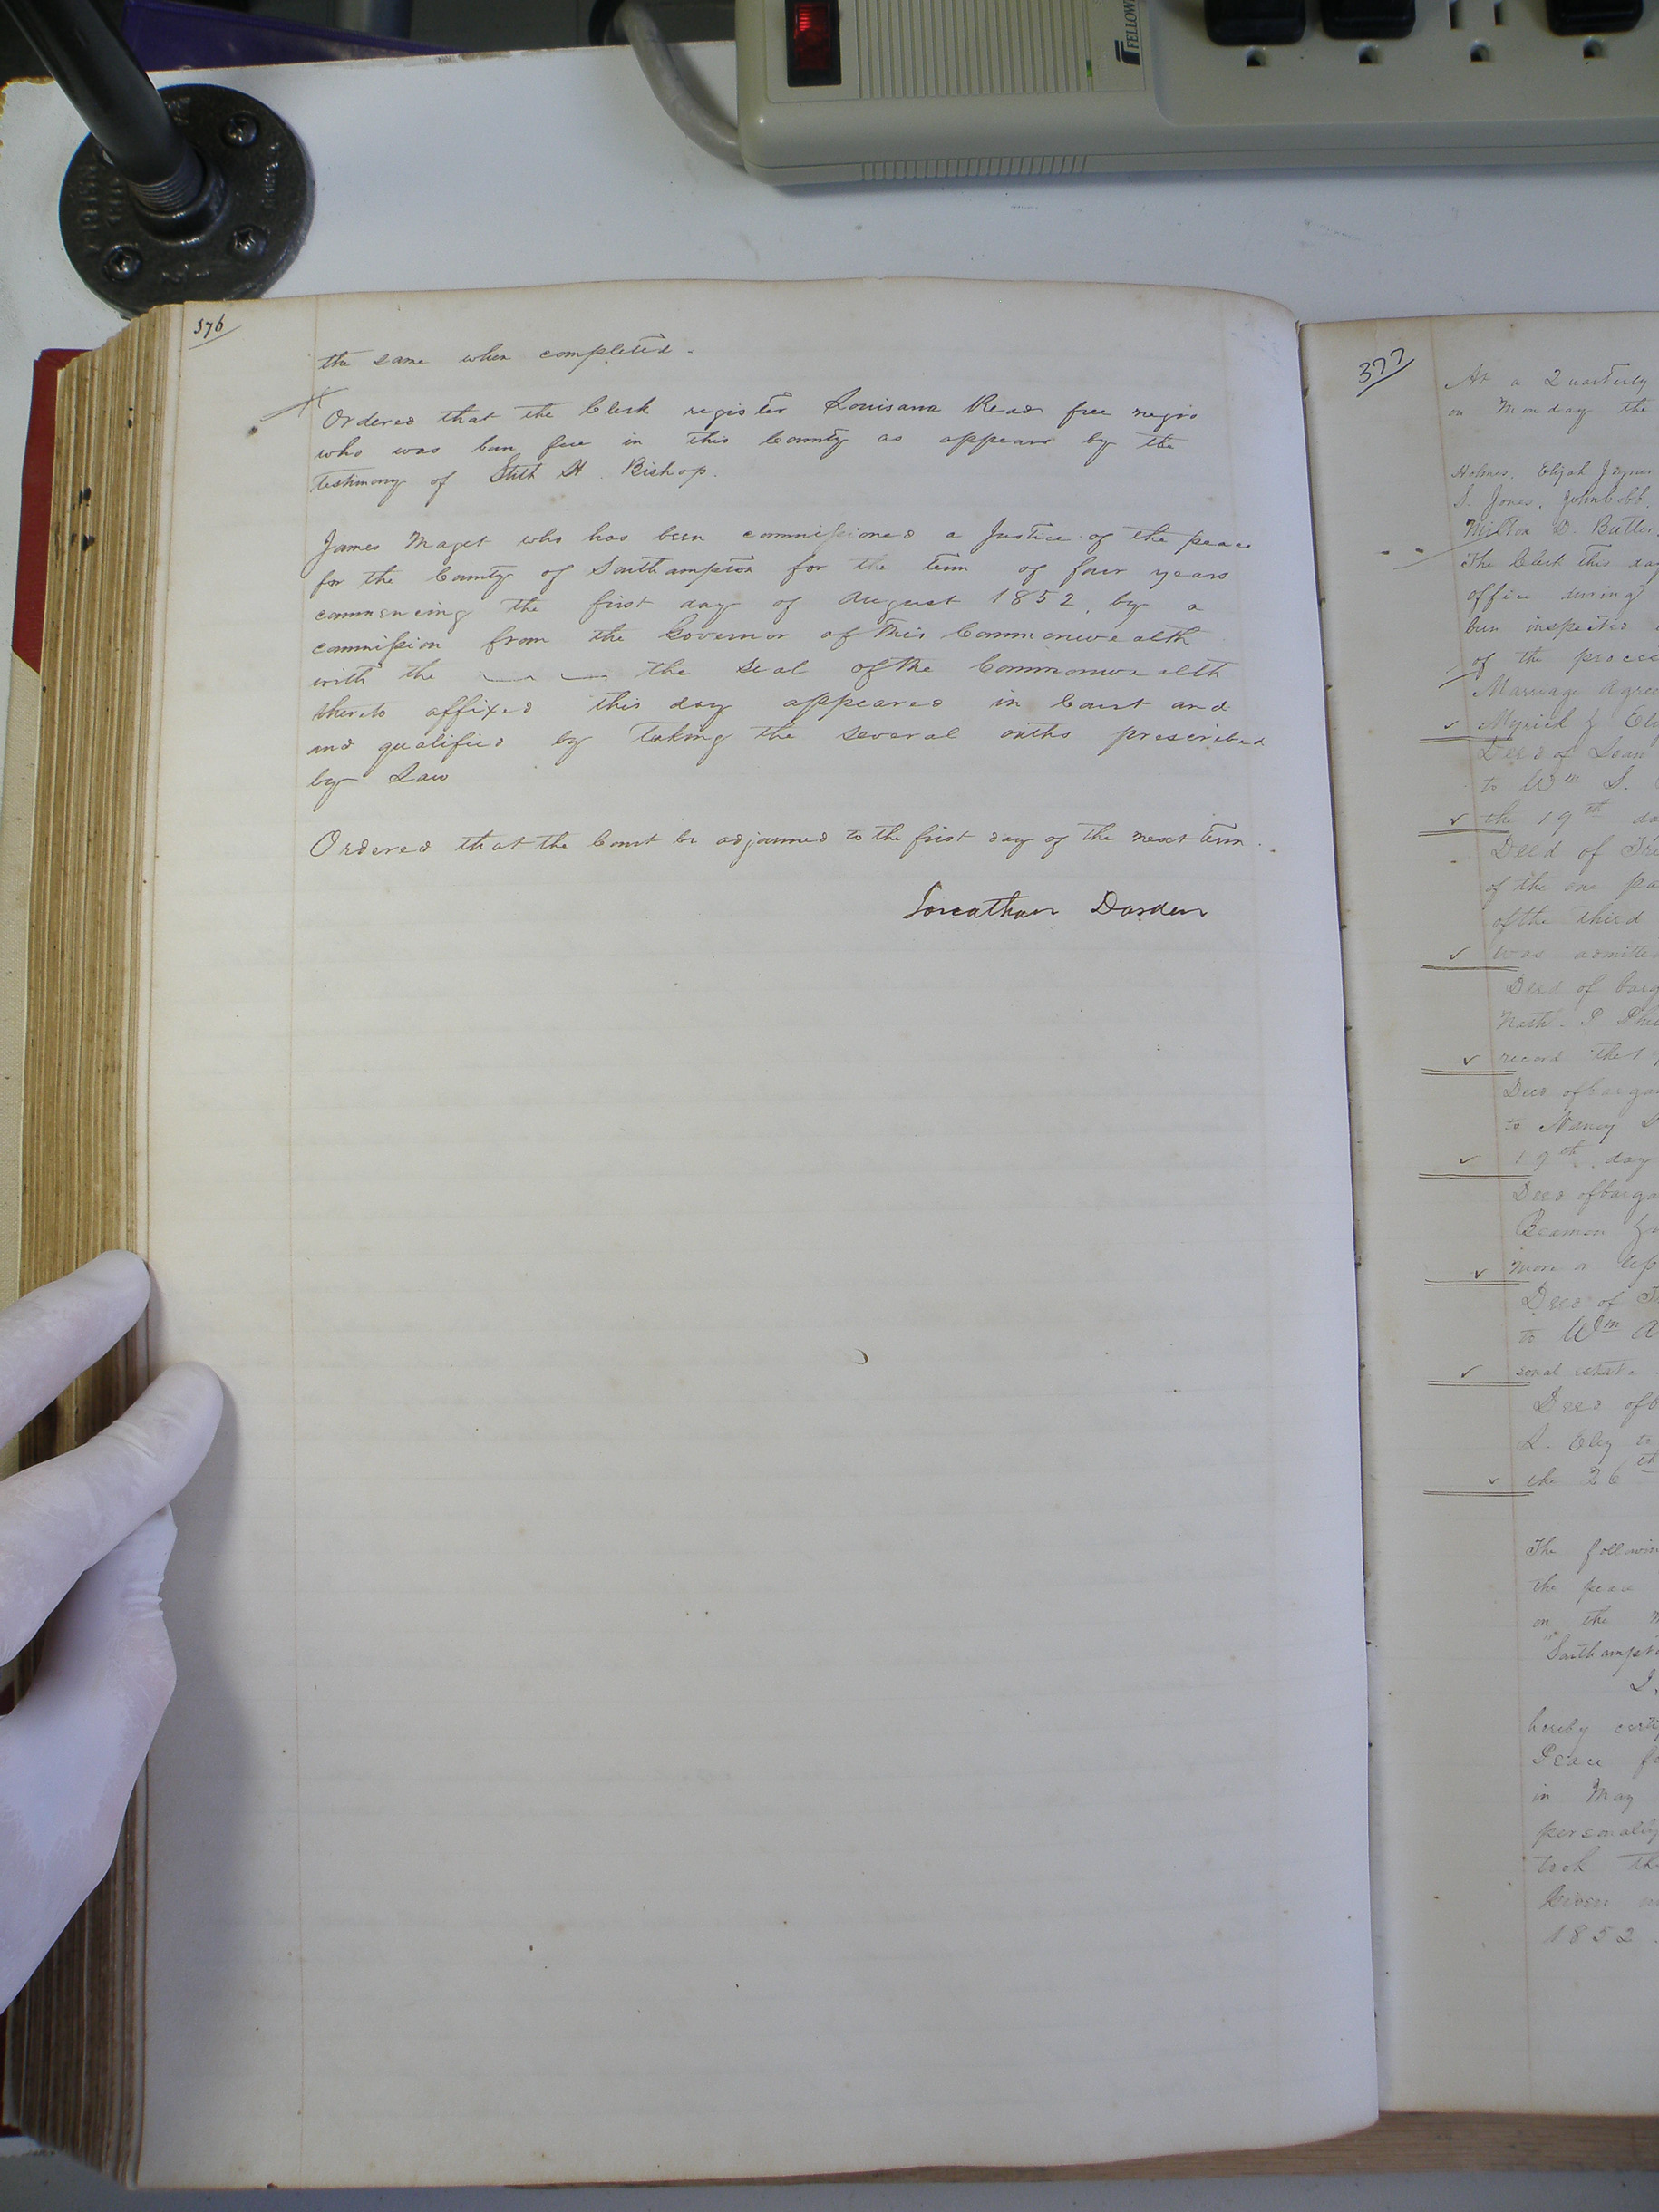 FELLOW
376
the same when completed.
Ordered that the Clerk register Louisana Read free negro
who was born free in this County as appears by the
testimony of Stith H. Bishop.
James Maget who has been commissioned a Justice of the peace
for the County of Southampton for the term of four years
commencing the first day of August 1852, by a
commission from the Governor of this Commonwealth
with the the seal of the Commonwealth
thereto affixed this day appeared in Court and
and qualified by taking the several oaths prescribed
by Law
Ordered that the Court be adjourned to the first day of the next term.
Jonathan Darden
377
At a Quarterly
on Monday the
Holmes, Elijah Joyner
S. Jones, John Cobb,
Milton D. Butler
The Clerk this day
office during
been inspected
of the process
Marriage Agree
Myrick & Eli
Deed of Loan
to Wm S.
the 19th da
Deed of Tru
of the one pa
of the third
was admitted
Deed of barg
Nath. P
record the 1
Deed of barga
to Nancy
19th day
Deed of barga
Beamon
more or less
Deed of T
to Wm A
sonal estate
Deed of b
L. Eley to
the 26th
The followin
the peace
on the
"Southampto
hereby certi
Peace fo
in May
personally
took the
Given
1852